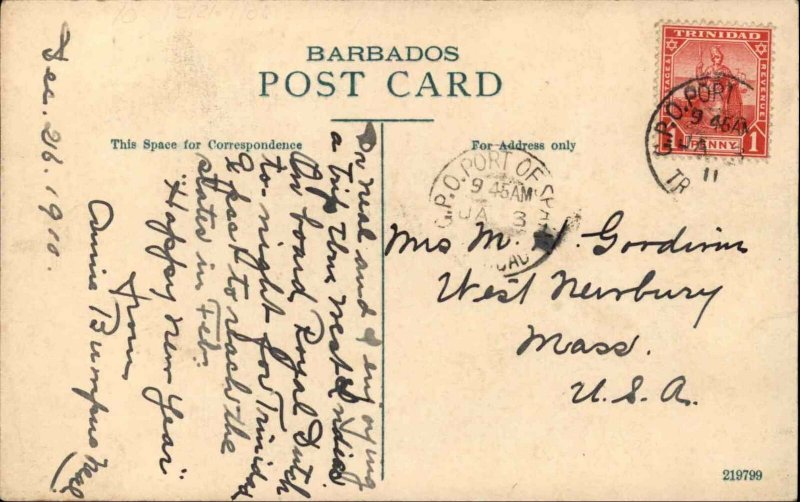 BARBADOS
POST CARD
This Space for Correspondence
For Address only
TRINIDAD
POSTAGE & REVENUE
1 PENNY 1
G.P.O. PORT
9 45AM
JA
11
TR
G.P.O. PORT OF SPA
9 45AM
JA 3
DAD
Dec. 26. 1910.
Dr Neal and I enjoying
a trip thru West Indies
On board Royal Dutch
to-night for Trinidad
Expect to reach the
states in Feb.
"Happy New Year"
from
Annie Bumpus Neal
Mrs M. Goodwin
West Newbury
Mass.
U.S.A.
219799